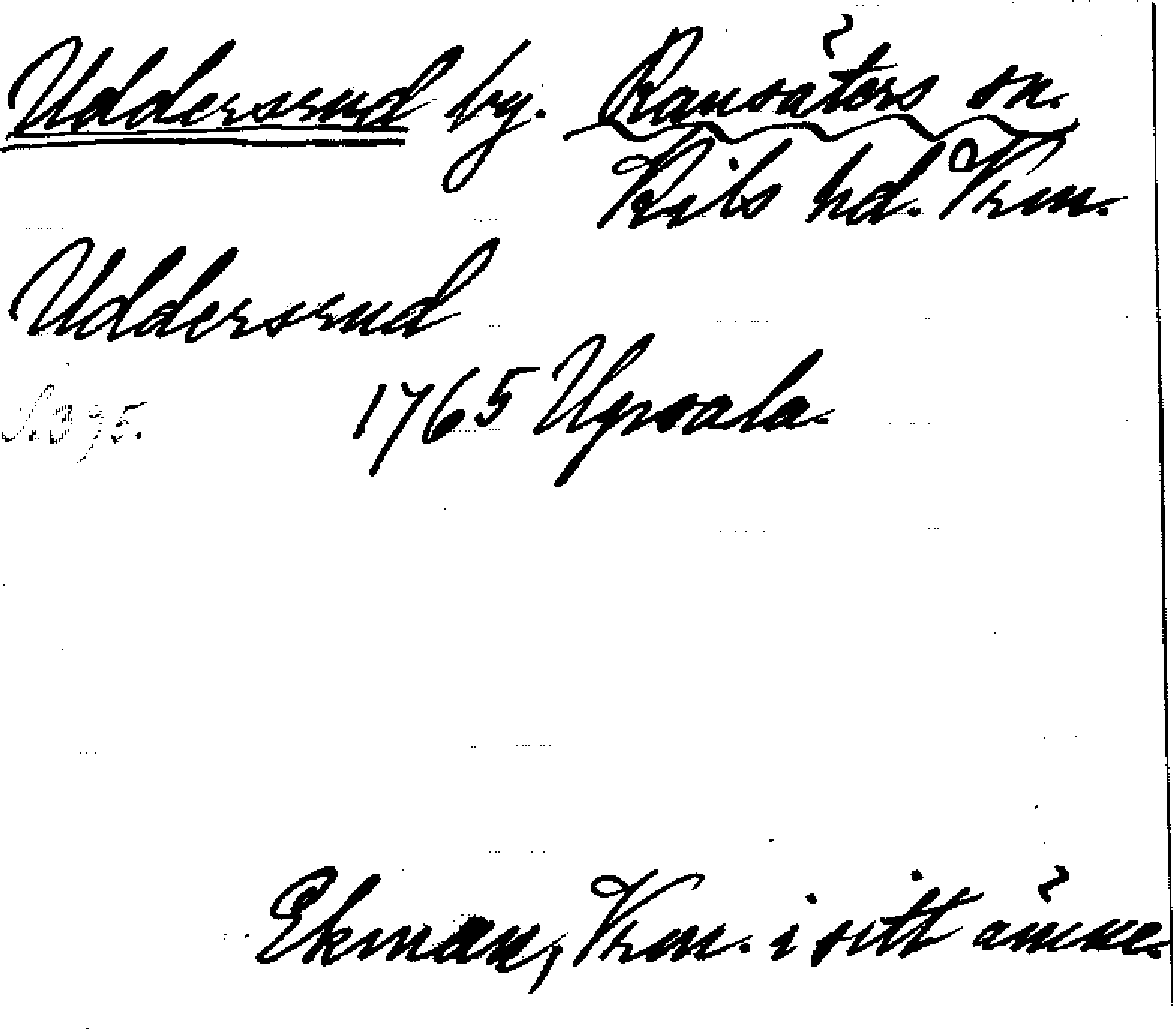 Uddersrud by. Ransäters sn.
Kils hd. Vrm.
Uddersrud
1765 Upsala.
Ekman, Vrm. i sitt ämne.